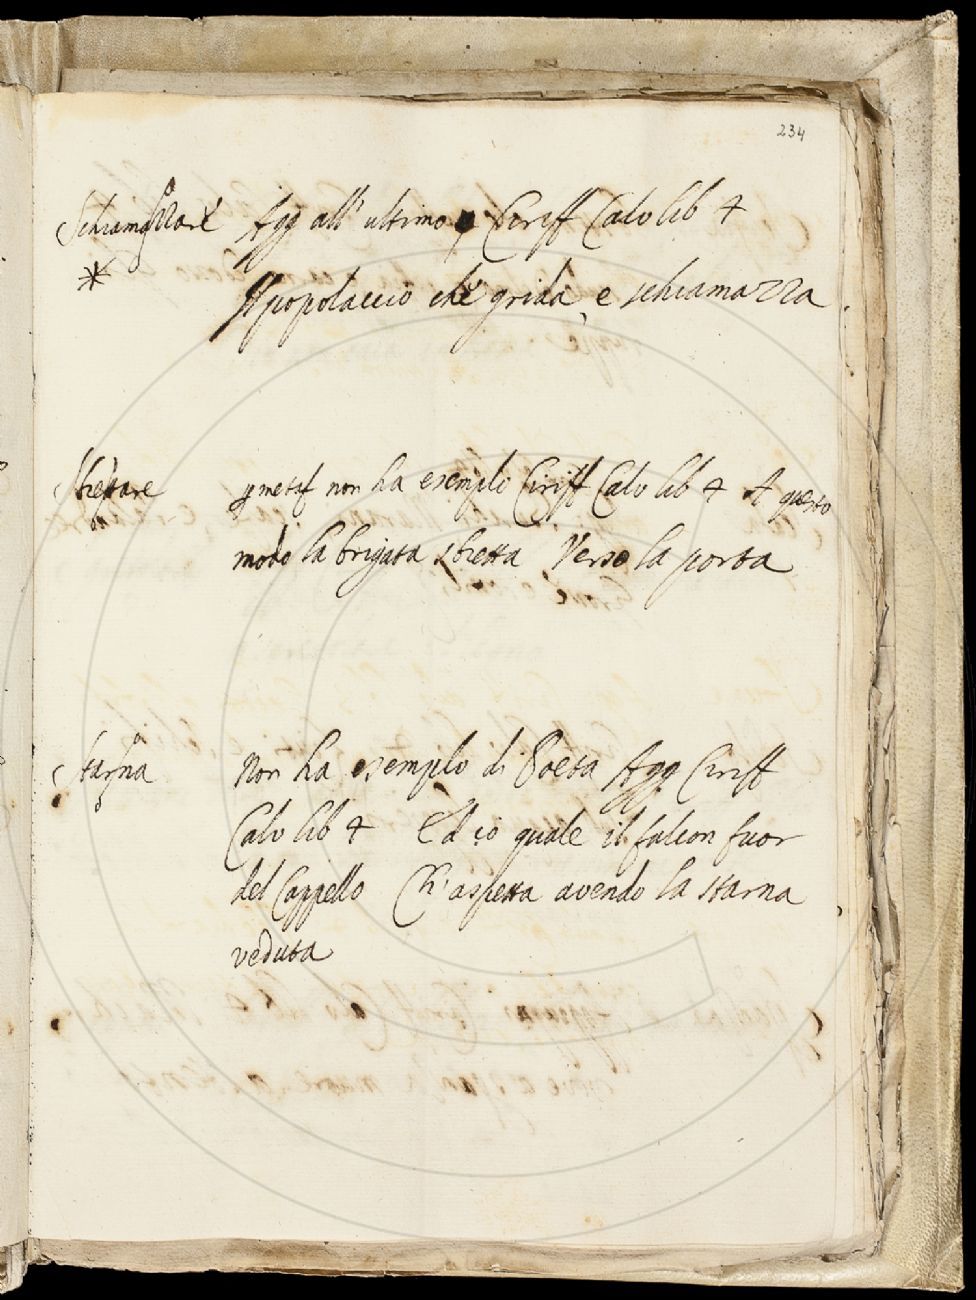 234
Schiamazzare Agg all' ultimo Ciriff Calv lib 4
* Il popolaccio che grida, e schiamazza
Sbiettare metaf non ha esempio Ciriff Calv lib 4 A questo
modo la brigata sbietta Verso la porta
Starna Non ha esempio di Poeta Agg Ciriff
Calv lib 4 Ed io quale il falcon fuor
del Cappello Ch' aspetta avendo la starna
veduta